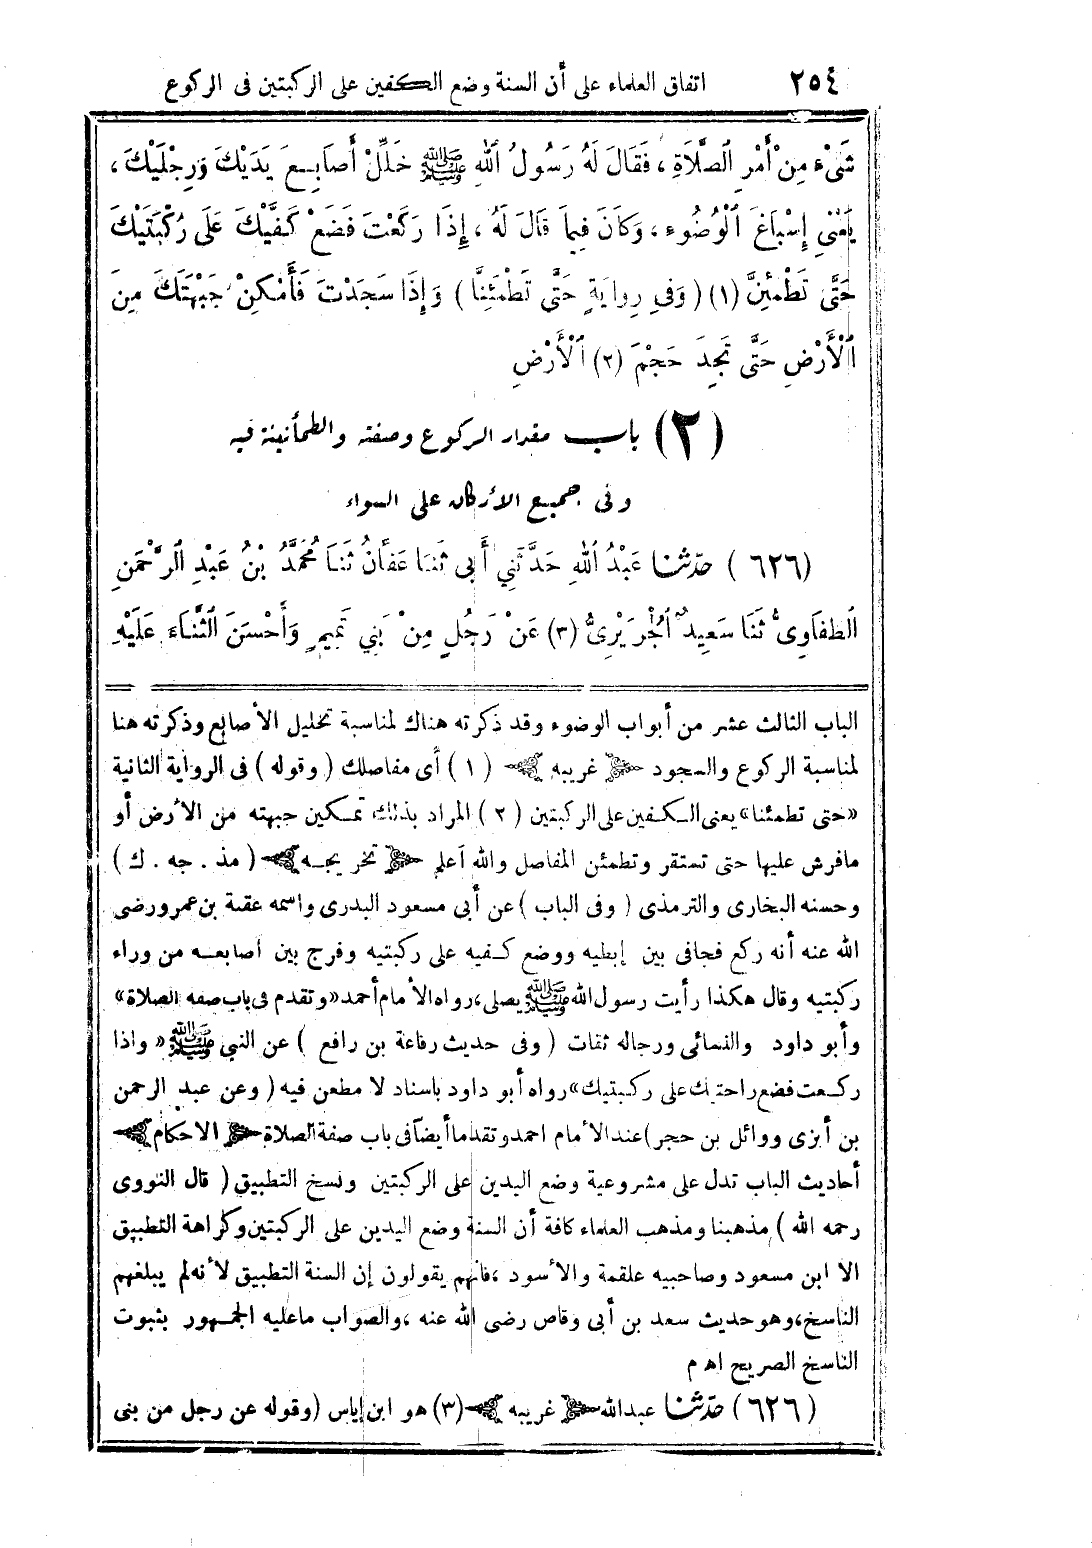 ٢٥٤ اتفاق العلماء على أن السنة وضع الكفين على الركبتين فى الركوع
شَىْءٍ مِنْ أَمْرِ الصَّلَاةِ ، فَقَالَ لَهُ رَسُولُ اللهِ ﷺ خَلِّلْ أَصَابِعَ يَدَيْكَ وَرِجْلَيْكَ ،
يَعْنِى إِسْبَاغَ الْوُضُوءِ ، وَكَانَ فِيمَا قَالَ لَهُ ، إِذَا رَكَعْتَ فَضَعْ كَفَّيْكَ عَلَى رُكْبَتَيْكَ
حَتَّى تَطْمَئِنَّ (١) ( وَفِى رِوَايَةٍ حَتَّى تَطْمَئِنَّا ) وَإِذَا سَجَدْتَ فَأَمْكِنْ جَبْهَتَكَ مِنَ
الْأَرْضِ حَتَّى تَجِدَ حَجْمَ (٢) الْأَرْضِ
(٢) باب مقدار الركوع وصفته والطمأنينة فيه
وفى جميع الأركان على السواء
(٦٢٦) حدّثنا عَبْدُ اللهِ حَدَّثَنِي أَبِى ثَنَا عَفَّانُ ثَنَا مُحَمَّدُ بْنُ عَبْدِ الرَّحْمَنِ
الطفَاوِىُّ ثَنَا سَعِيدٌ الْجُرَيْرِىُّ (٣) عَنْ رَجُلٍ مِنْ بَنِي تَمِيمٍ وَأَحْسَنَ الثَّنَاءَ عَلَيْهِ
الباب الثالث عشر من أبواب الوضوء وقد ذكرته هناك لمناسبة تخليل الأصابع وذكرته هنا
لمناسبة الركوع والسجود غريبه (١) أى مفاصلك (وقوله) فى الرواية الثانية
«حتى تطمئنا» يعنى الكفين على الركبتين (٢) المراد بذلك تمكين جبهته من الأرض أو
مافرش عليها حتى تستقر وتطمئن المفاصل والله أعلم تخريجه ( مذ . جه . ك )
وحسنه البخارى والترمذى ( وفى الباب ) عن أبى مسعود البدرى واسمه عقبة بن عمرو رضى
الله عنه أنه ركع فجافى بين إبطيه ووضع كفيه على ركبتيه وفرج بين أصابعه من وراء
ركبتيه وقال هكذا رأيت رسول الله ﷺ يصلى، رواه الأمام أحمد «وتقدم فى باب صفه الصلاة»
وأبو داود والنسائى ورجاله ثقات ( وفى حديث رفاعة بن رافع ) عن النبي ﷺ « واذا
ركعت فضع راحتيك على ركبتيك» رواه أبو داود باسناد لا مطعن فيه ( وعن عبد الرحمن
بن أبزى ووائل بن حجر) عند الأمام احمد وتقدما أيضاً فى باب صفة الصلاة الاحكام
أحاديث الباب تدل على مشروعية وضع اليدين على الركبتين ونسخ التطبيق ( قال النووى
رحمه الله ) مذهبنا ومذهب العلماء كافة أن السنة وضع اليدين على الركبتين وكراهة التطبيق
الا ابن مسعود وصاحبيه علقمة والأسود ، فانهم يقولون إن السنة التطبيق لأنه لم يبلغهم
الناسخ، وهو حديث سعد بن أبى وقاص رضى الله عنه ، والصواب ماعليه الجمهور بثبوت
الناسخ الصريح اه م
(٦٢٦) حدّثنا عبدالله غريبه (٣) هو ابن إياس (وقوله عن رجل من بنى